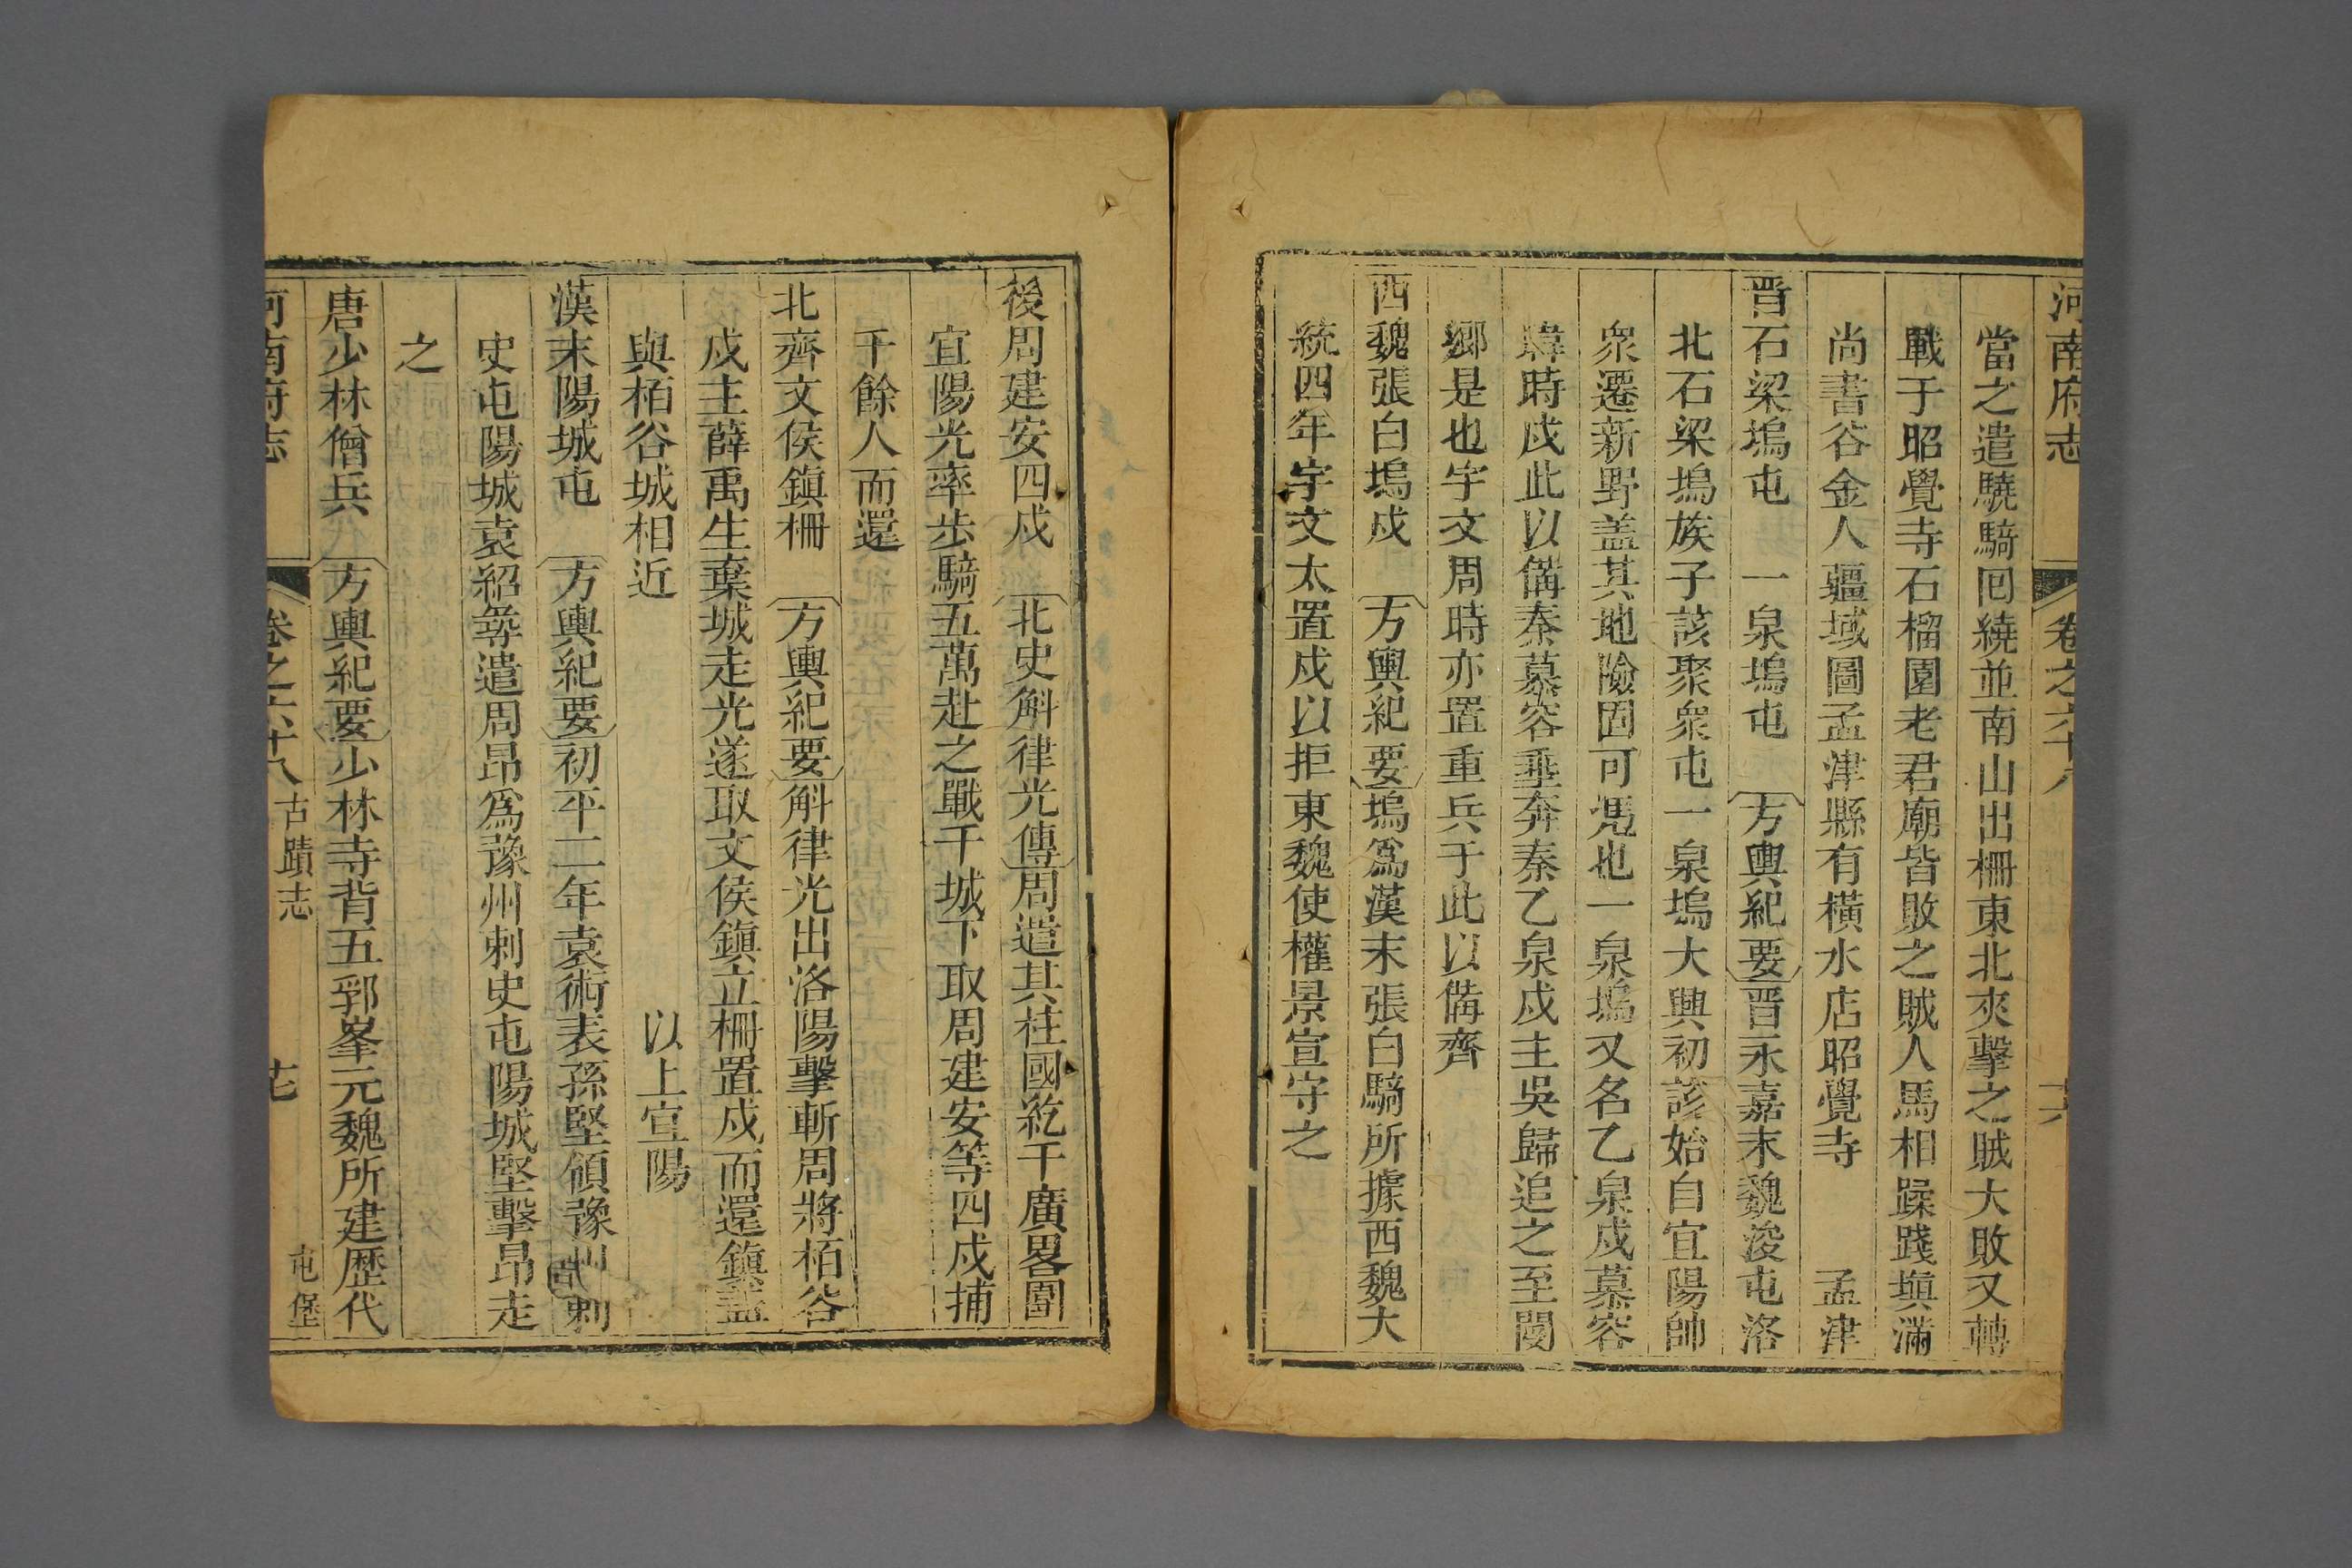 河南府志 卷之六十八
當之遣驍騎回繞並南山出柵東北夾擊之賊大敗又轉
戰于昭覺寺石榴園老君廟皆敗之賊人馬相蹂踐塡滿
尚書谷金人疆域圖孟津縣有橫水店昭覺寺 孟津
晋石梁塢屯 一泉塢屯 方輿紀要晋永嘉末魏浚屯洛
北石梁塢族子該聚衆屯一泉塢大興初該始自宜陽帥
衆遷新野盖其地險固可馮也一泉塢又名乙泉戍慕容
暐時戍此以備秦慕容垂奔秦乙泉戍主吳歸追之至閿
鄉是也宇文周時亦置重兵于此以備齊
西魏張白塢戍 方輿紀要塢爲漢末張白騎所據西魏大
統四年宇文太置戍以拒東魏使權景宣守之
後周建安四戍 北史斛律光傳周遣其柱國紇干廣畧圍
宜陽光率步騎五萬赴之戰于城下取周建安等四戍捕
千餘人而還
北齊文侯鎮柵 方輿紀要斛律光出洛陽擊斬周將栢谷
戍主薛禹生棄城走光遂取文侯鎮立柵置戍而還鎮蓋
與栢谷城相近 以上宣陽
漢末陽城屯 方輿紀要初平二年袁術表孫堅領豫州刺
史屯陽城袁紹尋遣周昂爲豫州刺史屯陽城堅擊昂走
之
唐少林僧兵 方輿紀要少林寺背五郛峯元魏所建歷代
河南府志 卷之六十八 古蹟志 屯堡